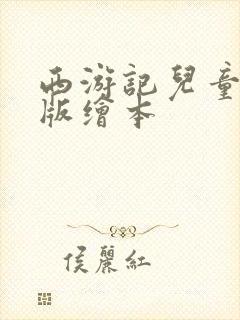 西游記兒童
版繪本
侯麗紅